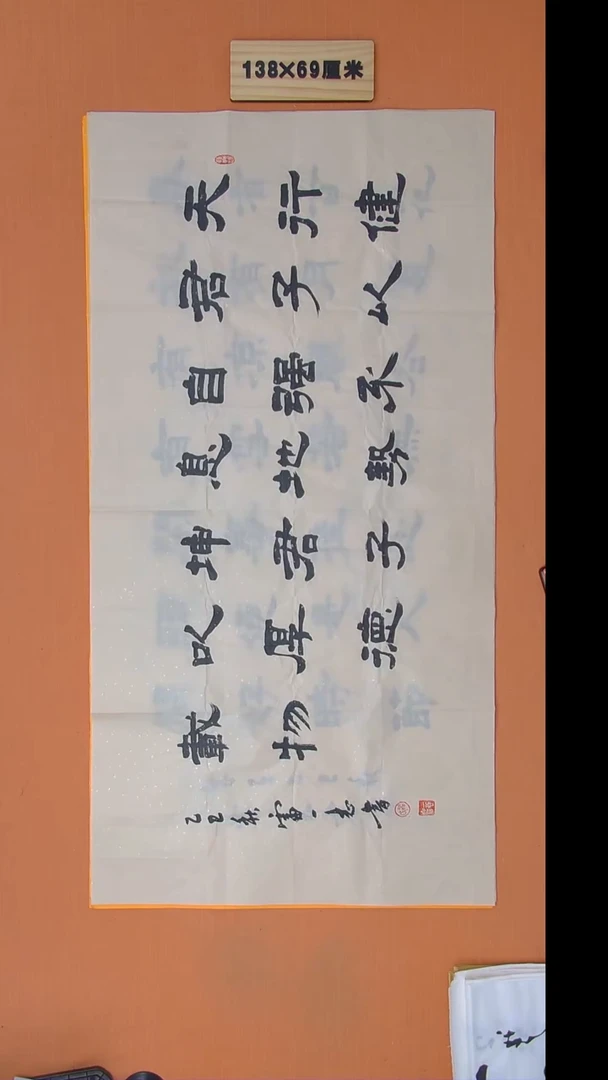 138×69厘米
天行健
君子以
自彊不
息地勢
坤君子
以厚德
載物
乙巳秋雷一志書